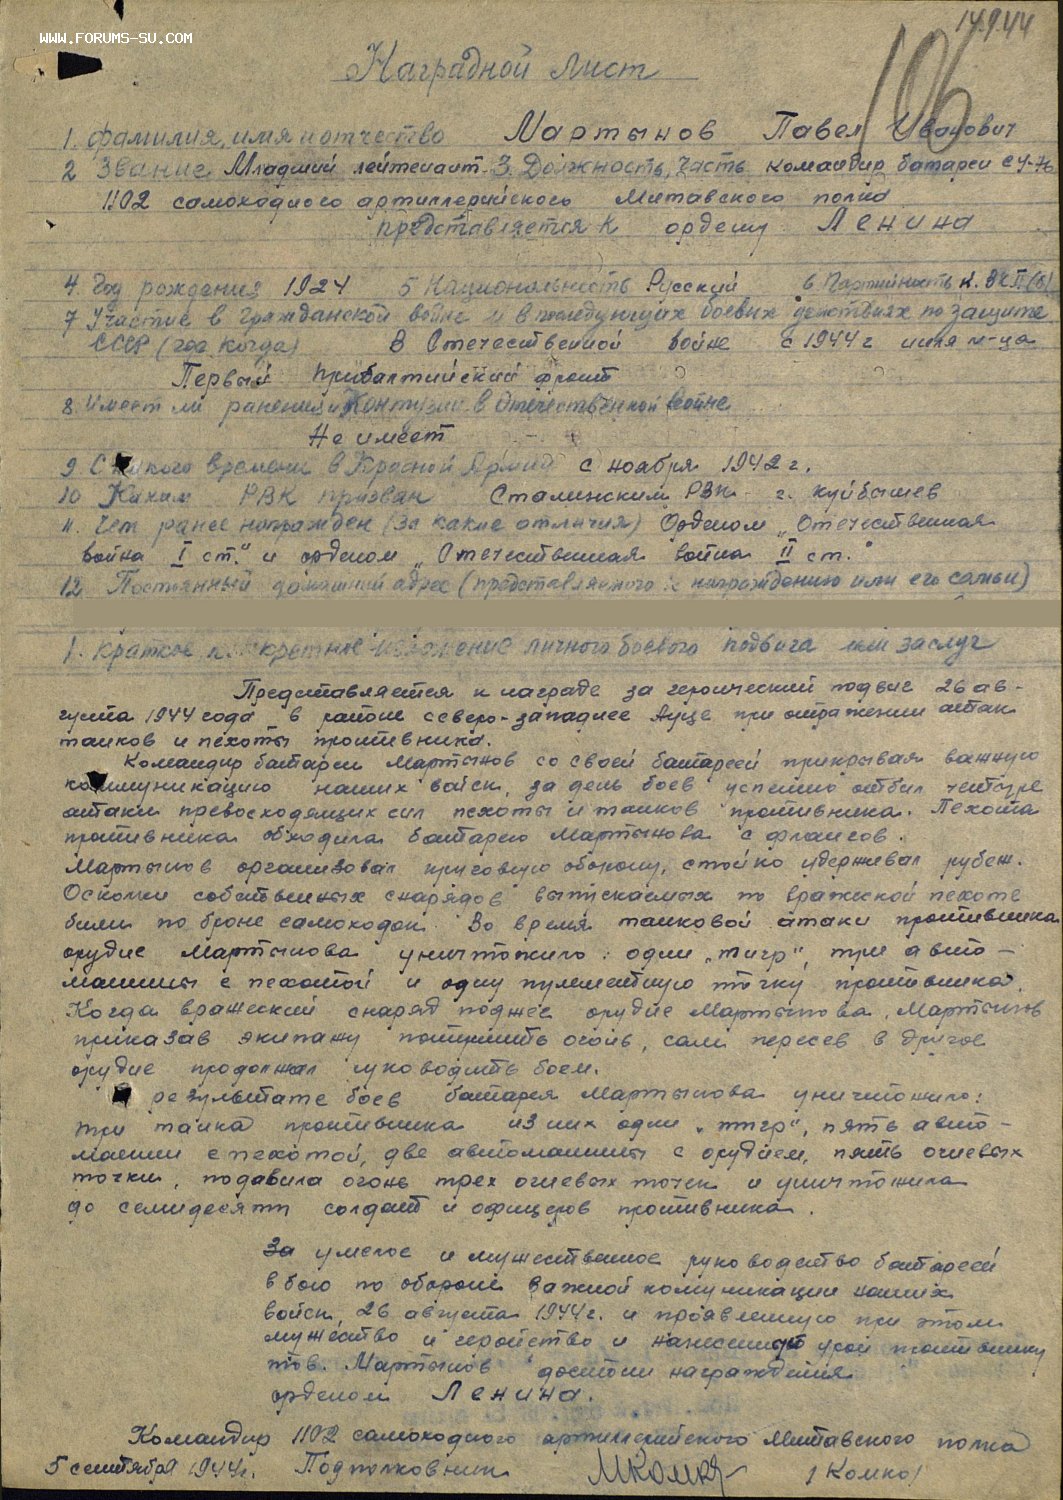 WWW.FORUMS-SU.COM
14.9.44
106
Наградной Лист
1. Фамилия, имя и отчество Мартынов Павел Иванович
2 Звание Младший лейтенант 3. Должность, часть командир батареи СУ-76
1102 самоходного артиллерийского Митавского полка
представляется к ордену Ленина
4. Год рождения 1924 5 Национальность Русский 6 Партийность к. ВКП(б)
7 Участие в гражданской войне и в последующих боевых действиях по защите
СССР (где когда) В Отечественной войне с 1944 г июля м-ца
Первый Прибалтийский фронт
8 Имеет ли ранения и контузии в Отечественной войне
Не имеет
9. С какого времени в Красной Армии с ноября 1942 г.
10 Каким РВК призван Сталинским РВК г. Куйбышев
11. Чем ранее награжден (за какие отличия) Орденом „Отечественная
война I ст." и орденом „Отечественная война II ст."
12. Постоянный домашний адрес (представляемого к награждению или его семьи)
1. Краткое конкретное изложение личного боевого подвига или заслуг
Представляется к награде за героический подвиг 26 ав-
густа 1944 года в районе северо-западнее Ауце при отражении атак
танков и пехоты противника.
Командир батареи Мартынов со своей батареей прикрывая важную
коммуникацию наших войск, за день боев успешно отбил четыре
атаки превосходящих сил пехоты и танков противника. Пехота
противника обходила батарею Мартынова с флангов.
Мартынов организовал круговую оборону, стойко удерживал рубеж.
Осколки собственных снарядов выпускаемых по вражеской пехоте
били по броне самоходок. Во время танковой атаки противника
орудие Мартынова уничтожило: один „тигр", три авто-
машины с пехотой и одну пулеметную точку противника.
Когда вражеский снаряд поджег орудие Мартынова, Мартынов
приказав экипажу потушить огонь, сам пересев в другое
орудие продолжал руководить боем.
В результате боев батарея Мартынова уничтожила:
три танка противника из них один „тигр", пять авто-
машин с пехотой, две автомашины с орудием, пять огневых
точки, подавила огонь трех огневых точек и уничтожила
до семидесяти солдат и офицеров противника.
За умелое и мужественное руководство батареей
в бою по обороне важной комуникации наших
войск, 26 августа 1944 г. и проявленную при этом
мужество и геройство и нанесенный урон противнику
тов. Мартынов достоин награждения
орденом Ленина.
Командир 1102 самоходного артиллерийского Митавского полка
5 сентября 1944 г. Подполковник /Комко/